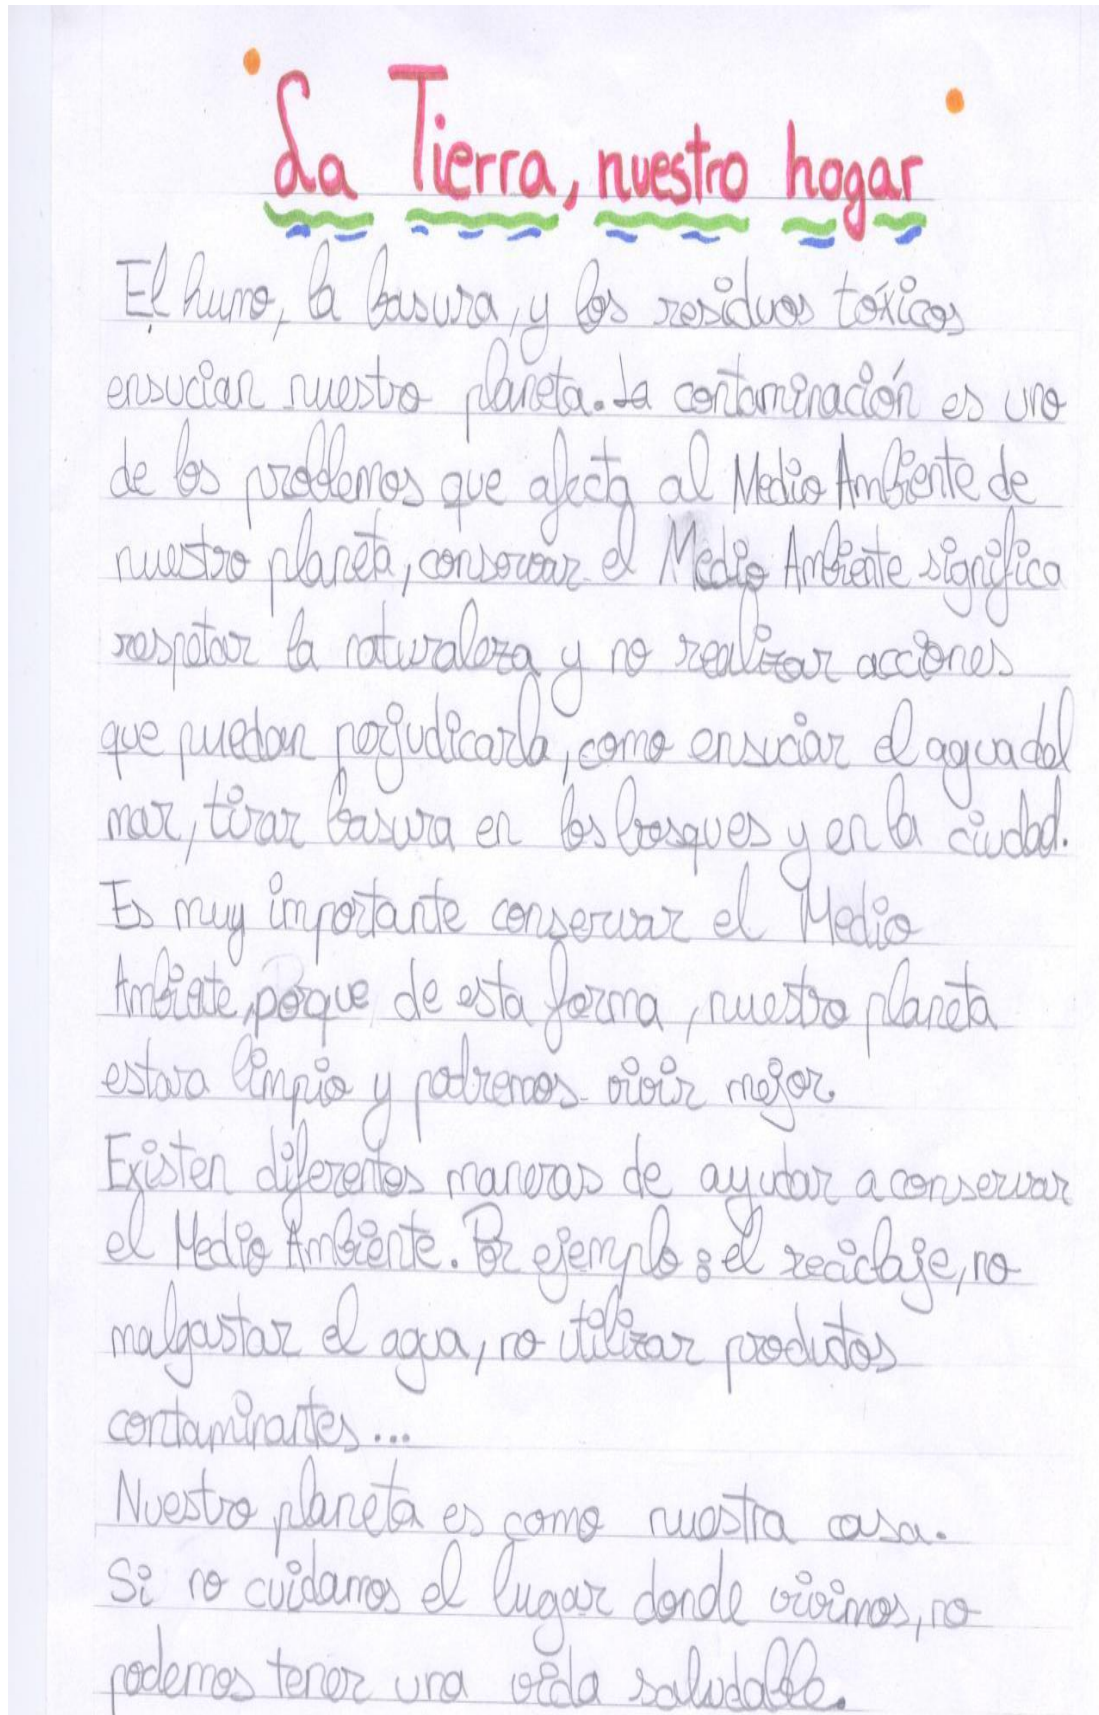 La Tierra, nuestro hogar
El humo, la basura, y los residuos tóxicos
ensucian nuestro planeta. La contaminación es uno
de los problemas que afecta al Medio Ambiente de
nuestro planeta, conservar el Medio Ambiente significa
respetar la naturaleza y no realizar acciones
que puedan perjudicarla, como ensuciar el agua del
mar, tirar basura en los bosques y en la ciudad.
Es muy importante conservar el Medio
Ambiate, porque de esta forma, nuestro planeta
estara limpio y podremos vivir mejor.
Existen diferentes maneras de ayudar a conservar
el Medio Ambiente. Por ejemplo: el reciclaje, no
malgastar el agua, no utilizar produtos
contaminantes...
Nuestro planeta es como nuestra casa.
Si no cuidamos el lugar donde vivimos, no
podemos tener una vida saludable.